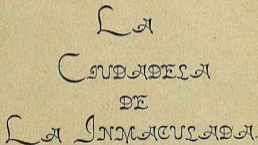 La
Ciudadela
de
La Inmaculada.